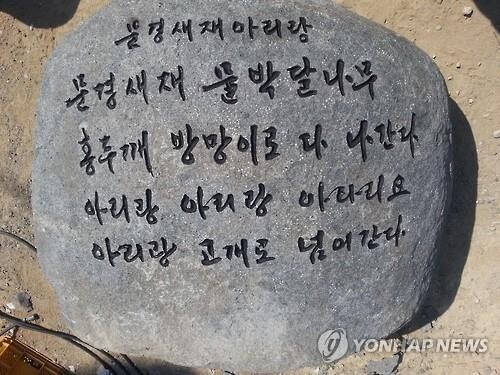 문경새재아리랑
문경새재 물박달나무
홍두깨 방망이로 다 나간다.
아리랑 아리랑 아라리요
아리랑 고개로 넘어간다.
YONHAP NEWS